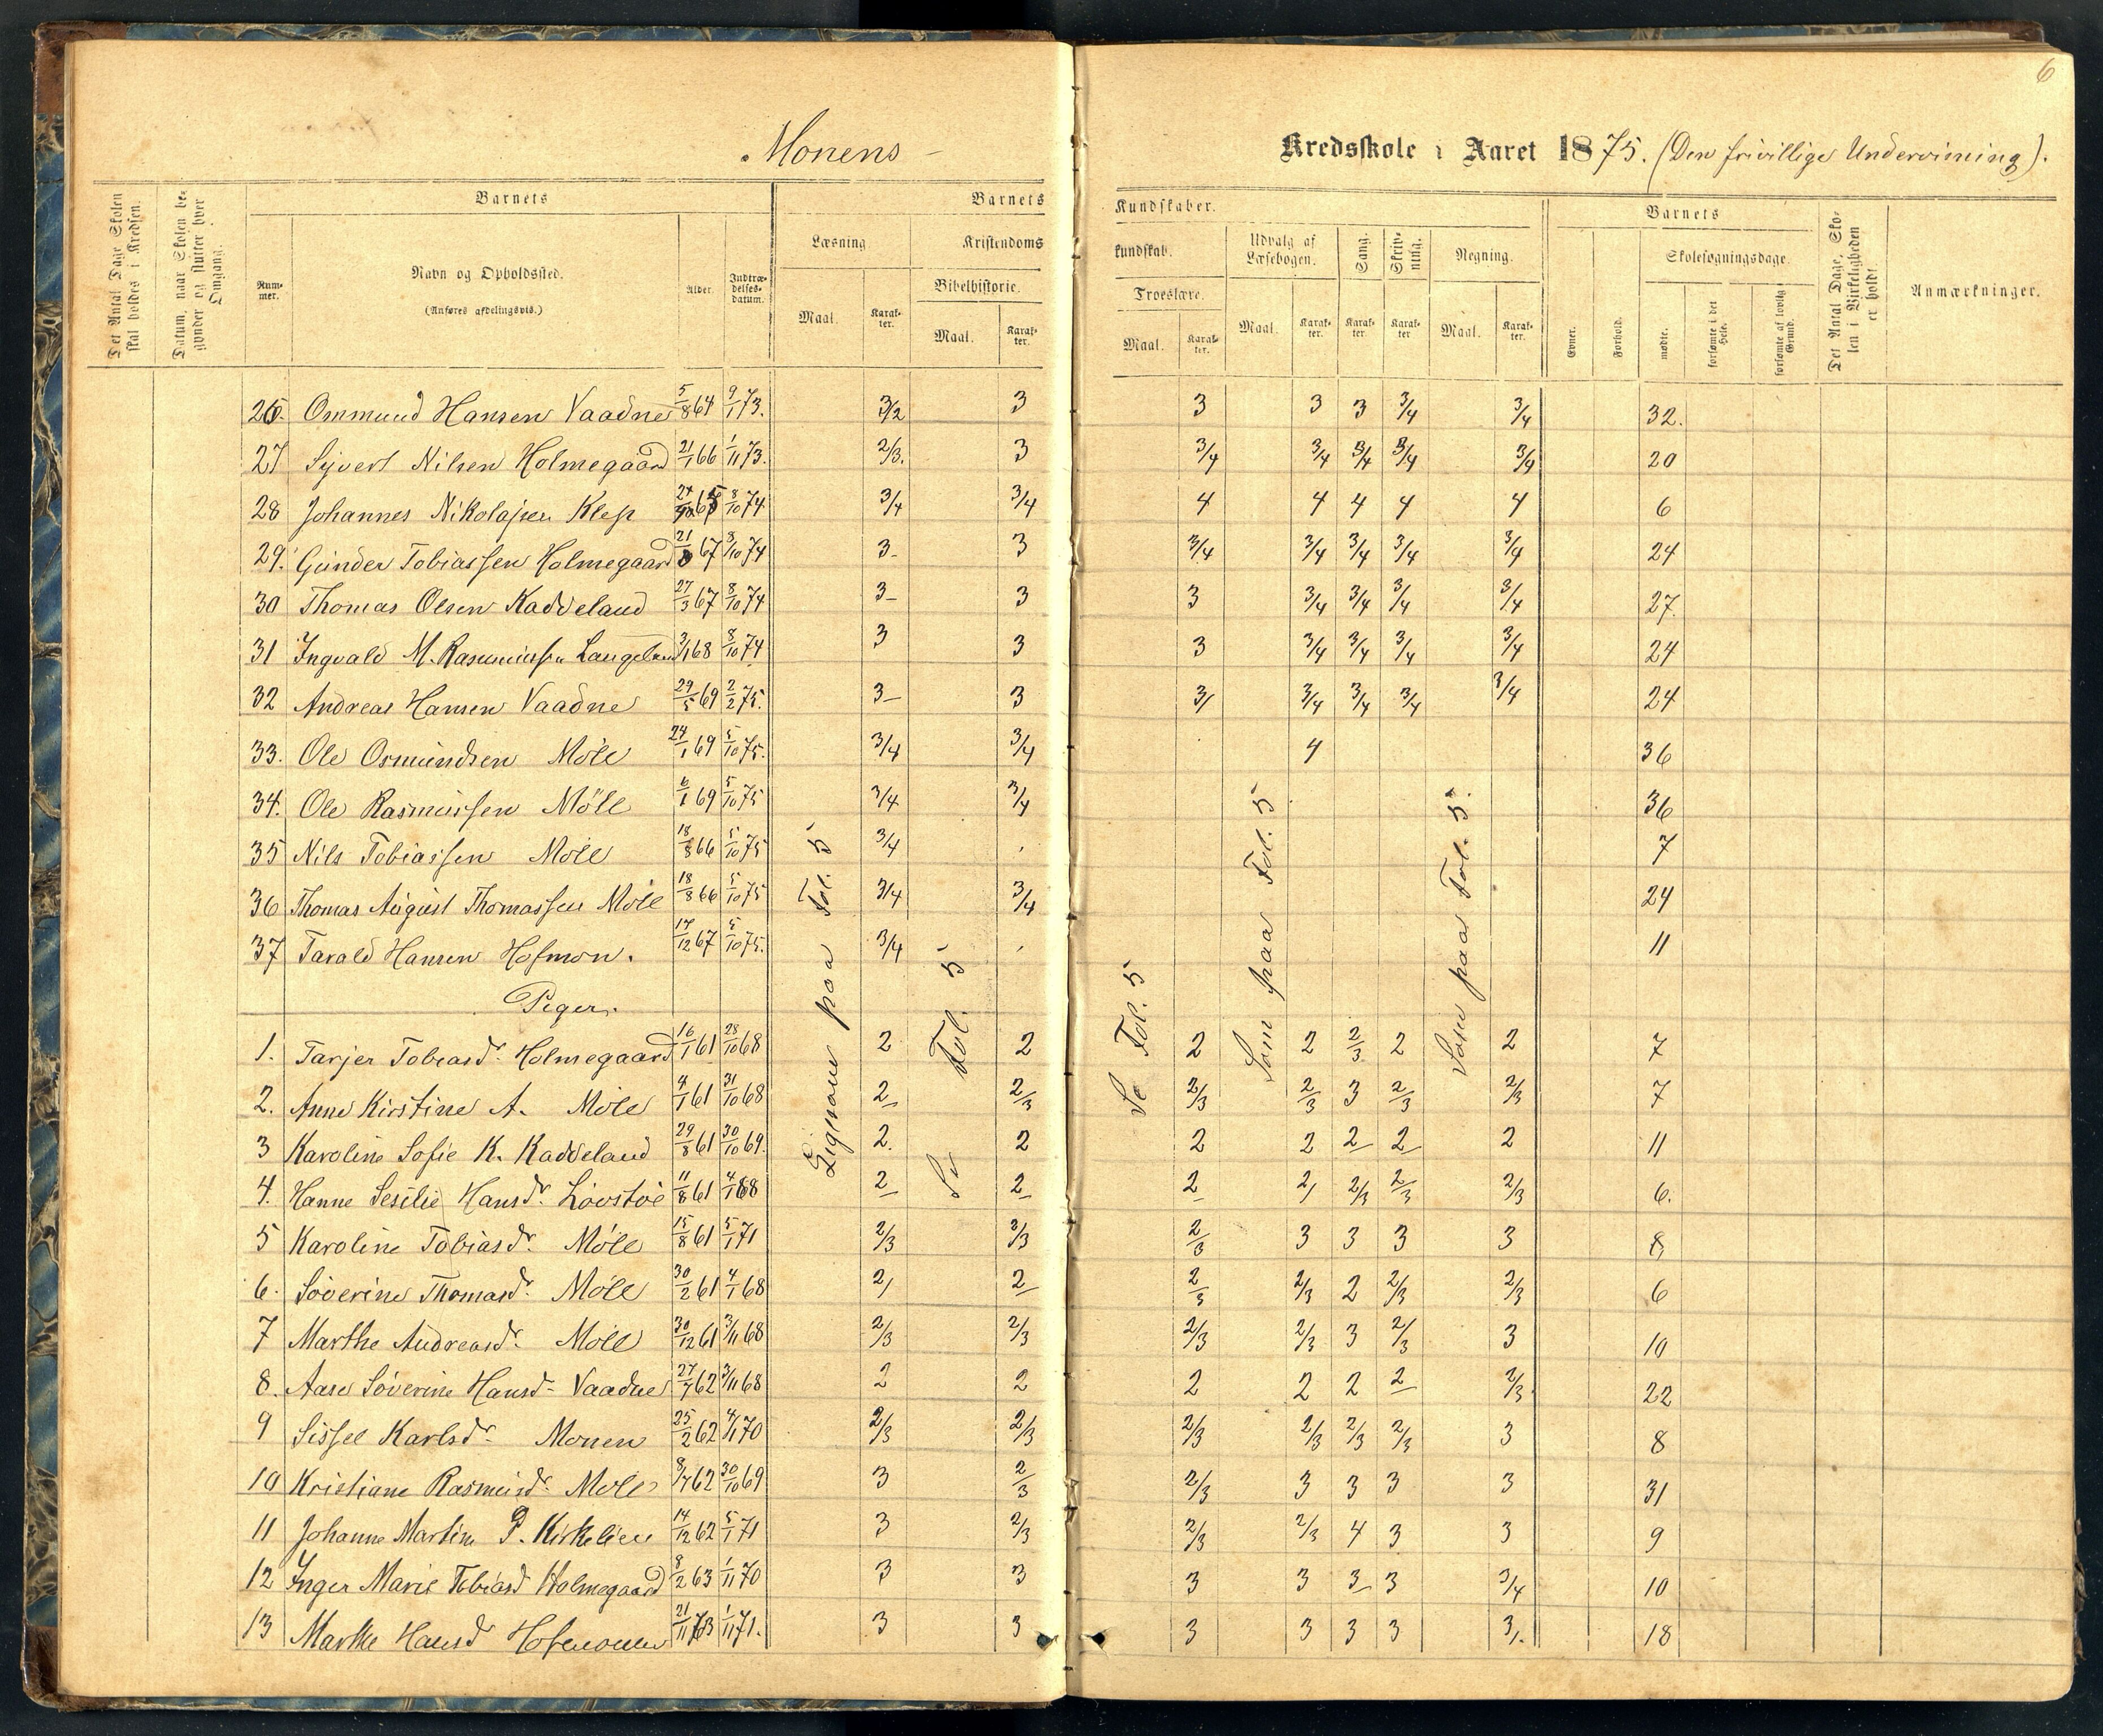 6
Monens
Kredsskole i Aaret 1875. (Den frivillige Undervisning).
Det Antal Dage Skolen skal holdes i Kredsen.
Datum, naar Skolen begynder og slutter hver Omgang.
Barnets
Num-mer.
Navn og Opholdssted.
(Anføres afdelingsvis.)
Alder.
Indtræ-delses-datum.
Barnets Kundskaber.
Læsning
Maal.
Karak-ter.
Kristendoms kundskab.
Bibelhistorie.
Maal.
Karak-ter.
Troeslære.
Maal.
Karak-ter.
Udvalg af Læsebogen.
Maal.
Karak-ter.
Sang.
Karak-ter.
Skriv-ning.
Karak-ter
Regning.
Maal.
Karak-ter.
Barnets
Evner.
Forhold.
Skolesøgningsdage.
mødte.
forsømte i det Hele.
forsømte af lovlig Grund.
Det Antal Dage, Sko-len i Virkeligheden er holdt.
Anmærkninger.
26. Ommund Hansen Vaadne 5/8 64 9/1 73. 3/2 3 3 3 3 3/4 3/4 32.
27 Syvert Nilsen Holmegaard 21/1 66 1/11 73. 2/3. 3 3/4 3/4 3/4 3/4 3/4 20
28 Johannes Nikolajsen Klep 65 8/10 74 3/4 3/4 4 4 4 4 4 6
29. Gunder Tobiassen Holmegaard 67 8/10 74 3- 3 3/4 3/4 3/4 3/4 3/4 24
30 Thomas Olsen Kaddeland 27/3 67 8/10 74 3- 3 3 3/4 3/4 3/4 3/4 27.
31 Ingvald M. Rasmussen Langeland 3/1 68 8/10 74 3 3 3 3/4 3/4 3/4 3/4 24
32 Andreas Hansen Vaadne 29/5 69 2/2 75. 3- 3 3/ 3/4 3/4 3/4 3/4 24
33. Ole Osmundsen Möll 24/1 69 5/10 75. 3/4 3/4 4 36
34. Ole Rasmussen Möll 6/1 69 5/10 75 3/4 3/4 36
35 Nils Tobiassen Möll 18/8 66 5/10 75 3/4 7
36 Thomas August Thomassen Möll 18/8 66 5/10 75 3/4 3/4 24
37 Tarald Hansen Hofmon. 17/12 67 5/10 75. 3/4 11
Piger.
1. Tarjer Tobiasd. Holmegaard 16/1 61 28/10 68 2 2 2 2 2/3 2 2 7
2. Anne Kirstine A. Möll 4/1 61 31/10 68 2 2/3 2/3 2/3 3 2/3 2/3 7
3 Karoline Sofie K. Kaddeland 29/8 61 30/10 69. 2. 2 2 2 2 2 2 11
4. Hanne Sesilie Hansdr. Lövstöe 11/8 61 4/1 68 2 2 2 2, 2/3 2/3 2/3 6.
5 Karoline Tobiasdr. Möll 15/8 61 5/1 71 2/3 2/3 2/3 3 3 3 3 8
6. Söverine Thomasdr. Möll 30/2 61 4/1 68 2, 2 2/3 2/3 2 2/3 2/3 6
7 Marthe Andreasdr. Möll 30/12 61 3/11 68 2/3 2/3 2/3 2/3 3 2/3 3 10
8. Aase Söverine Hansd. Vaadne 27/7 62 3/11 68 2 2 2 2 2 2 2/3 22
9 Sissel Karlsdr. Monen 25/2 62 4/1 70 2/3 2/3 2/3 2/3 2/3 2/3 3 8
10 Kristiane Rasmusdr. Möll 8/7 62 30/10 69 3 2/3 2/3 3 3 3 3 31
11 Johanne Martine P. Kirkelien 14/12 62 5/1 71 3 2/3 2/3 2/3 4 3 3 9
12 Inger Marie Tobiasd Holmegaard 8/2 63 1/11 70 3 3 3 3 3 3 3/4 10
13 Marthe Hansd Hofmoen 21/11 63 1/11 71. 3 3 3 3 3 3 3/. 18
Ligesom paa Fol. 5
Se Fol. 5
Se Fol. 5
Som paa Fol. 5
Som paa Fol. 5.